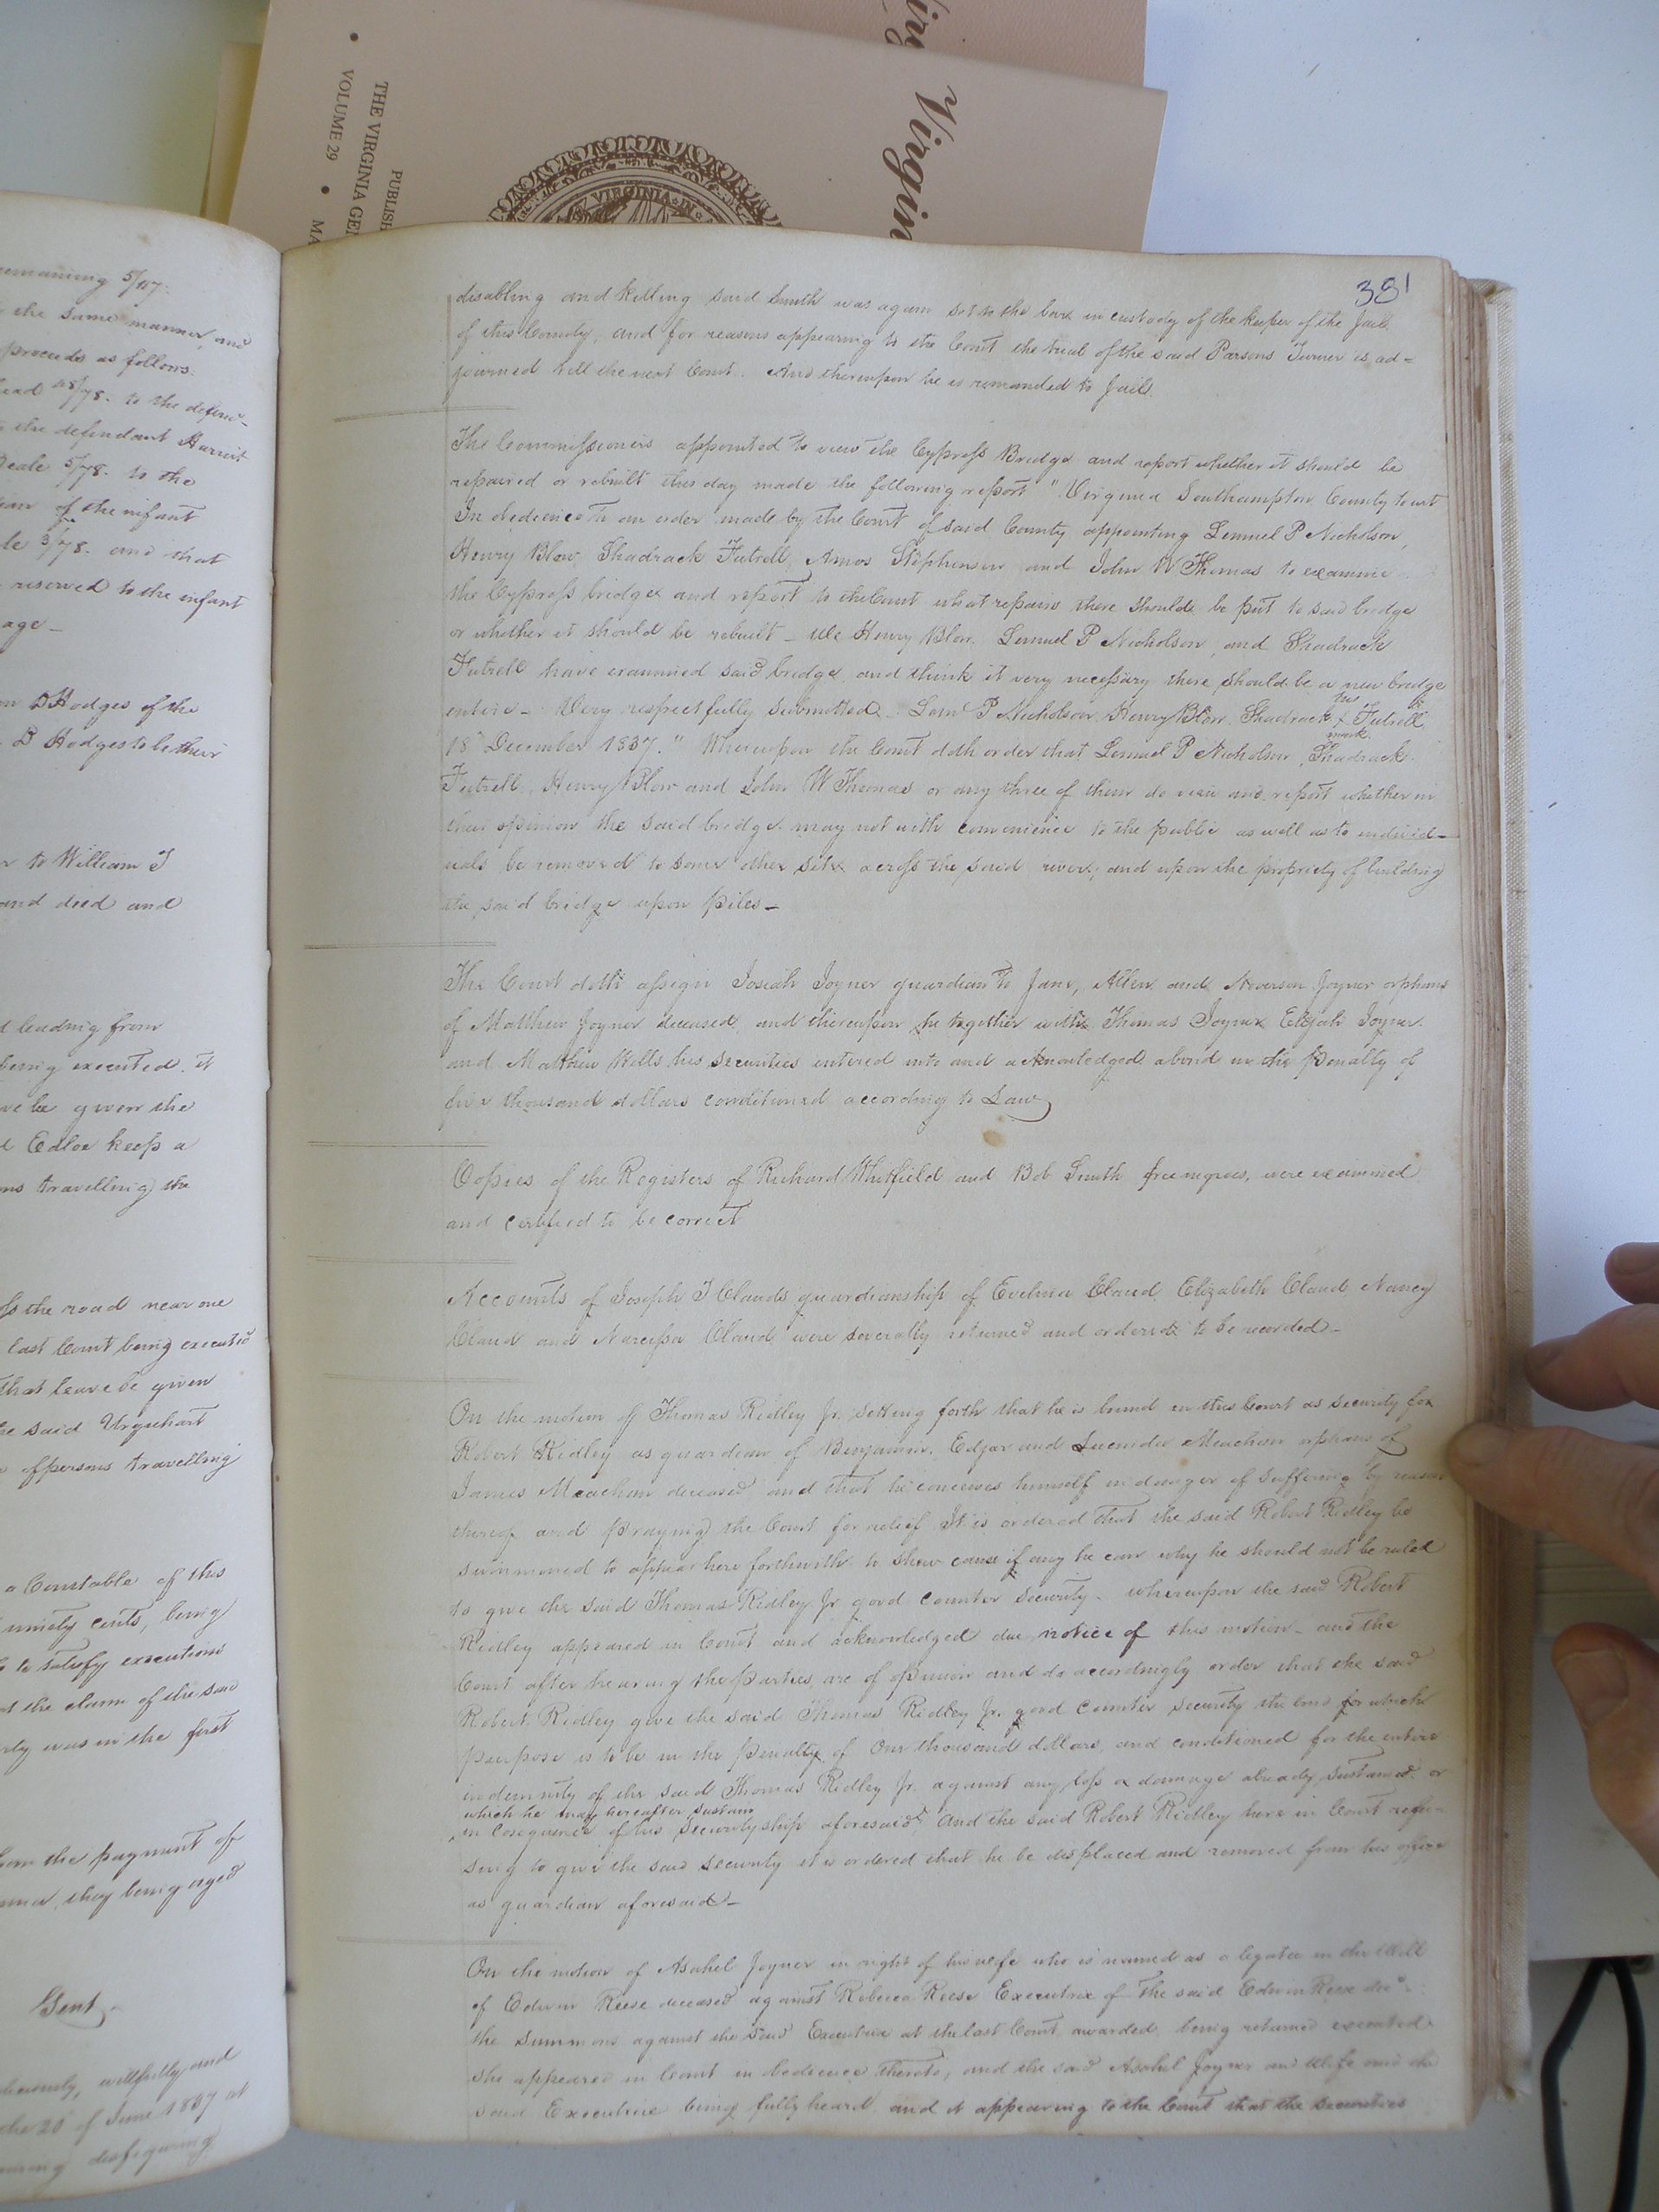 Virgin
PUBLISH
THE VIRGINIA GEN
VOLUME 29 • MA
VIRGINIA IN
remaining 5/117.
the same manner, and
proceeds as follows.
to the defen-
the defendant Harriet
Beale 5/78. to the
of the infant
3/78. and that
reserved to the infant
age —
D Hodges of the
D Hodges to be their
to William J
and died and
leading from
being executed. it
be given the
Edloe keep a
travelling the
the road near one
last Court being executed
that leave be given
said Urquhart
of persons travelling
a Constable of this
ninety cents, being
to satisfy executions
the claim of the said
was in the first
from the payment of
they being aged
Gent.
willfully and
the 20th of June 1837 at
disfiguring
381
disabling and killing said Smith was again set to the bar in custody of the keeper of the Jail
of this County, and for reasons appearing to the Court the trial of the said Parsons Turner is ad-
journed till the next Court. And thereupon he is remanded to Jail.
The Commissioners appointed to view the Cypress Bridge and report whether it should be
repaired or rebuilt this day made the following report "Virginia Southampton County Court
In obedience to an order made by the Court of said County appointing Lemuel P Nicholson,
Henry Blow, Shadrack Futrell, Amos Stephenson and John W Thomas to examine
the Cypress bridge and report to the Court what repairs there should be put to said bridge
or whether it should be rebuilt — We Henry Blow. Lemuel P Nicholson, and Shadrack
Futrell have examined said bridge, and think it very necessary there should be a new bridge
entire — Very respectfully submitted — Leml P Nicholson, Henry Blow, Shadrack his x mark Futrell
18th December 1837." Whereupon the Court doth order that Lemuel P Nicholson, Shadrack
Futrell, Henry Blow and John W Thomas or any three of them do view and report whether in
their opinion the said bridge may not with convenience to the public as well as to individ-
uals be removed to some other site across the said river; and upon the propriety of building
the said bridge upon piles —
The Court doth assign Josiah Joyner guardian to Jane, Allen and Newsom Joyner orphans
of Matthew Joyner deceased, and thereupon he together with Thomas Joyner Elijah Joyner
and Matthew Wells his securities entered into and acknowledged a bond in the penalty of
five thousand dollars conditioned according to Law
Copies of the Registers of Richard Whitfield and Bob Smith free negroes, were examined
and certified to be correct
Accounts of Joseph J Claud's guardianship of Evelina Claud, Elizabeth Claud Nancy
Claud and Narcissa Claud were severally returned and ordered to be recorded —
On the motion of Thomas Ridley Jr. setting forth that he is bound in this Court as security for
Robert Ridley as guardian of Benjamin, Edgar and Lucinda Meachem orphans of
James Meachem deceased and that he conceives himself in danger of suffering by reason
thereof and praying the Court for relief It is ordered that the said Robert Ridley be
summoned to appear here forthwith to show cause if any he can why he should not be ruled
to give the said Thomas Ridley Jr good counter security. whereupon the said Robert
Ridley appeared in Court and acknowledged due notice of this motion — and the
Court after hearing the parties are of opinion and do accordingly order that the said
Robert Ridley give the said Thomas Ridley Jr. good counter security the bond for which
purpose is to be in the penalty of One thousand dollars, and conditioned for the entire
indemnity of the said Thomas Ridley Jr. against any loss or damage already sustained or
which he may hereafter sustain
in cosequence of his securityship aforesaid and the said Robert Ridley here in Court refu-
sing to give the said security it is ordered that he be displaced and removed from his office
as guardian aforesaid —
On the motion of Asahel Joyner in right of his wife who is named as a legatee in the Will
of Edwin Reese deceased against Rebecca Reese Executrix of the said Edwin Reese decd
the summons against the said Executrix at the last Court awarded being returned executed
she appeared in Court in obedience thereto, and the said Asahel Joyner and Wife and the
said Executrix being fully heard and it appearing to the Court that the securities